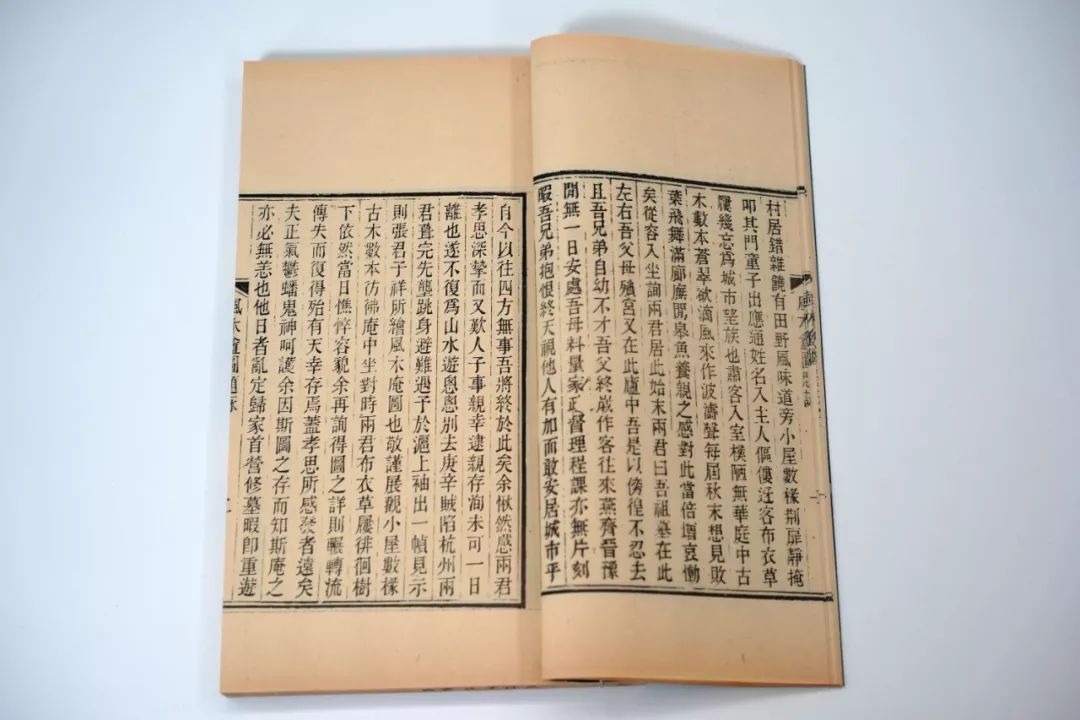 村居錯雜饒有田野風味道旁小屋數椽荆扉靜掩
叩其門童子出應通姓名入主人傴僂迓客布衣草
屨幾忘爲城市望族也肅客入室樸陋無華庭中古
木數本蒼翠欲滴風來作波濤聲每屆秋末想見敗
葉飛舞滿廊廡閒皋魚養親之感對此當倍增哀慟
矣從容入坐詢兩君居此始末兩君曰吾祖墓在此
左右吾父母殯宮又在此廬中吾是以傍徨不忍去
且吾兄弟自幼不才吾父終歲作客往來燕齊晉豫
閒無一日安處吾母料量家政督理程課亦無片刻
暇吾兄弟抱恨終天視他人有加而敢安居城市乎
自今以往四方無事吾將終於此矣余愀然感兩君
孝思深摯而又歎人子事親幸逮親存洵未可一日
離也遂不復爲山水遊悤悤别去庚辛賊陷杭州兩
君葺完先壟跳身避難遇予於滬上袖出一幀見示
則張君子祥所繪風木庵圖也敬謹展觀小屋數椽
古木數本彷彿庵中坐對時兩君布衣草屨徘徊樹
下依然當日憔悴容貌余再詢得圖之詳則輾轉流
傳失而復得殆有天幸存焉蓋孝思所感發者遠矣
夫正氣鬱蟠鬼神呵護余因斯圖之存而知斯庵之
亦必無恙也他日者亂定歸家首營修墓暇卽重遊
風木盦圖題詠